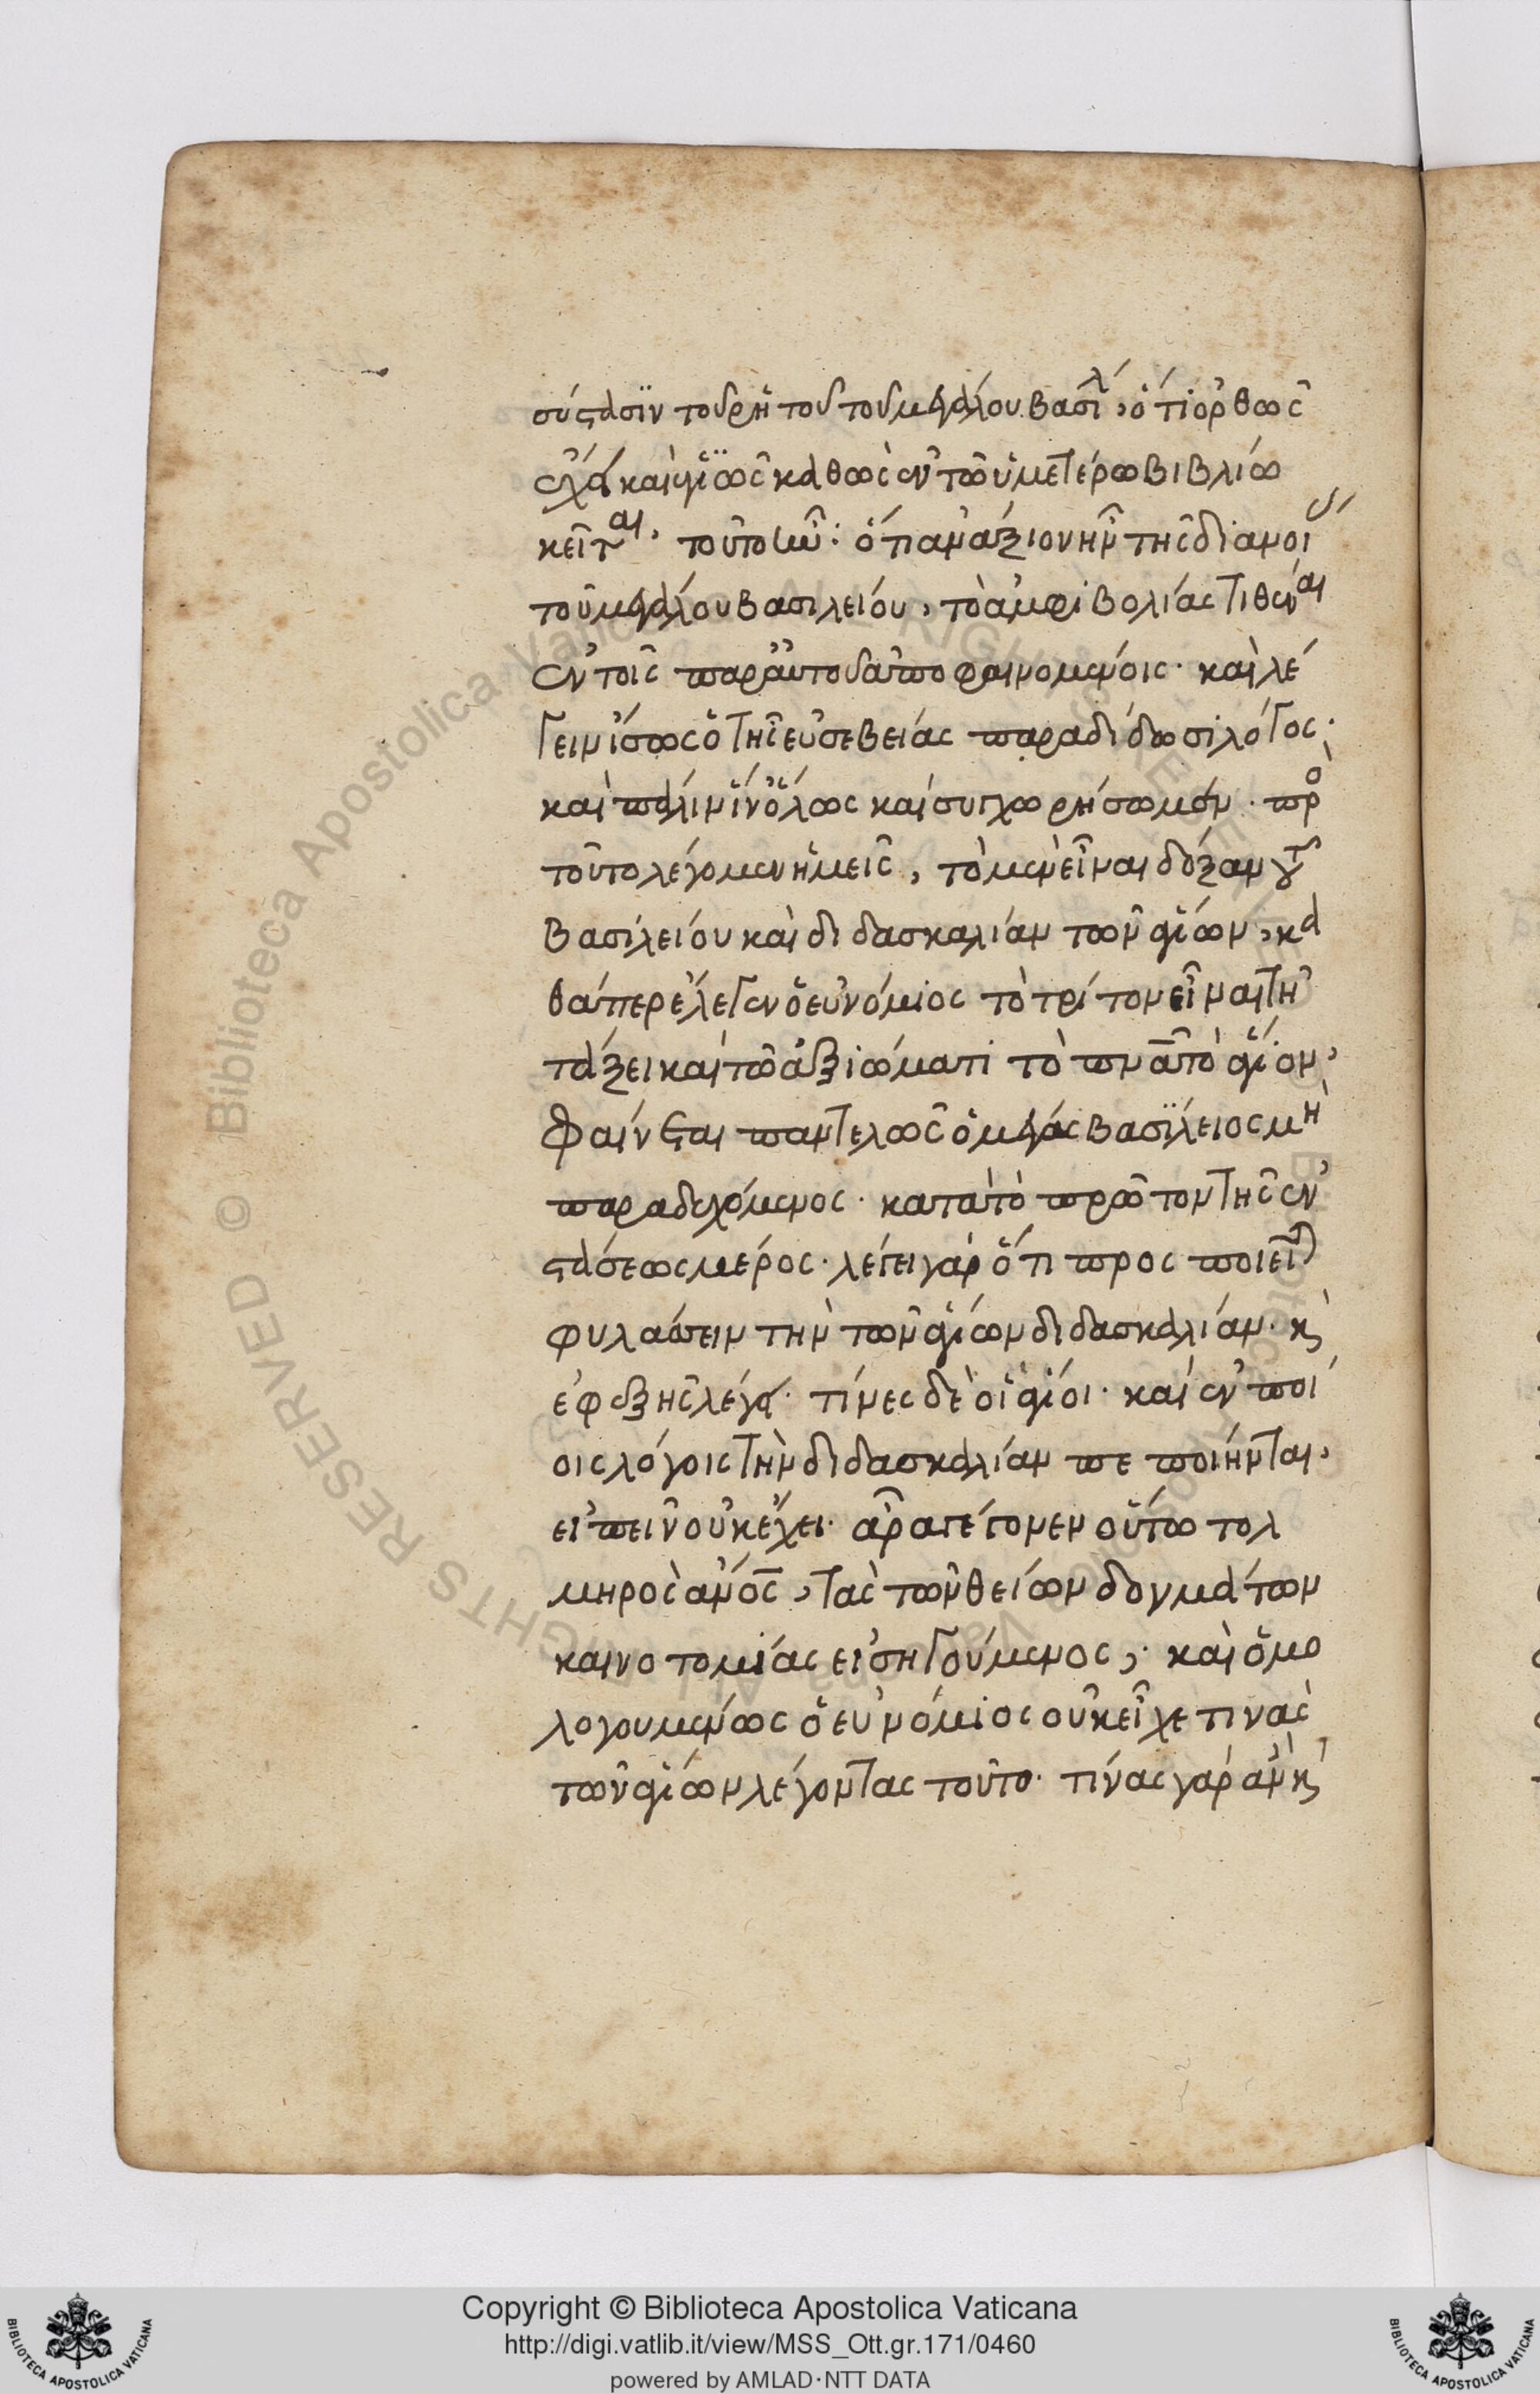 σύστασϊν τοῦ ῥητοῦ τοῦ μεγάλου βασιλ, ὅτι ὀρθῶς
ἔχει καὶ ἁγίως καθὼς ἐν τῶ ὑμετέρω βιβλίω
κεῖται, τοῦτο ἦν· ὅτι ἀνάξιον ἦν τῆς διανοί
τοῦ μεγάλου βασιλείου, τὸ ἀμφιβολίας τιθέναι
ἐν τοῖς παρ' αὐτοῦ ἀποφαινομένοις. καὶ λέ
γειν ἴσως ὁ τῆς εὐσεβείας παραδίδωσι λόγος.
καὶ πάλιν ἵν' ὅλως καὶ συγχωρήσωμεν. πρὸ
τοῦτο λέγομεν ἡμεῖς, τὸ μὲν εἶναι δόξαν τοῦ
βασιλείου καὶ διδασκαλίαν τῶν ἁγίων, κα
θάπερ ἔλεγεν ὁ εὐνόμιος τὸ τρίτον εἶναι τῆ
τάξει καὶ τῶ ἀξιώματι τὸ πνᾶ τὸ ἅγιον,
φαίνεται παντελῶς ὁ μέγας βασΐλειος μὴ
παραδεχόμενος. κατὰ τὸ πρῶτον τῆς ἐν
στάσεως μέρος. λέγει γὰρ ὅτι προσποιεῖται
φυλάσσειν τὴν τῶν ἁγίων διδασκαλίαν. κ
ἐφεξῆς λέγει. τίνες δὲ οἱ ἅγιοι. καὶ ἐν ποί
οις λόγοις τὴν διδασκαλίαν πεποίηνται,
εἰπεῖν οὐκ ἔχει. ἆρα γέγονεν οὕτω τολ
μηρὸς ἀνός, τὰς τῶν θείων δογμάτων
καινοτομίας εἰσηγούμενος,. καὶ ὁμο
λογουμένως ὁ εὐνόμιος οὐκ εἶχε τινὰς
τῶν ἁγίων λέγοντας τοῦτο. τίνας γὰρ ἂν κ
Copyright © Biblioteca Apostolica Vaticana
http://digi.vatlib.it/view/MSS_Ott.gr.171/0460
powered by AMLAD·NTT DATA